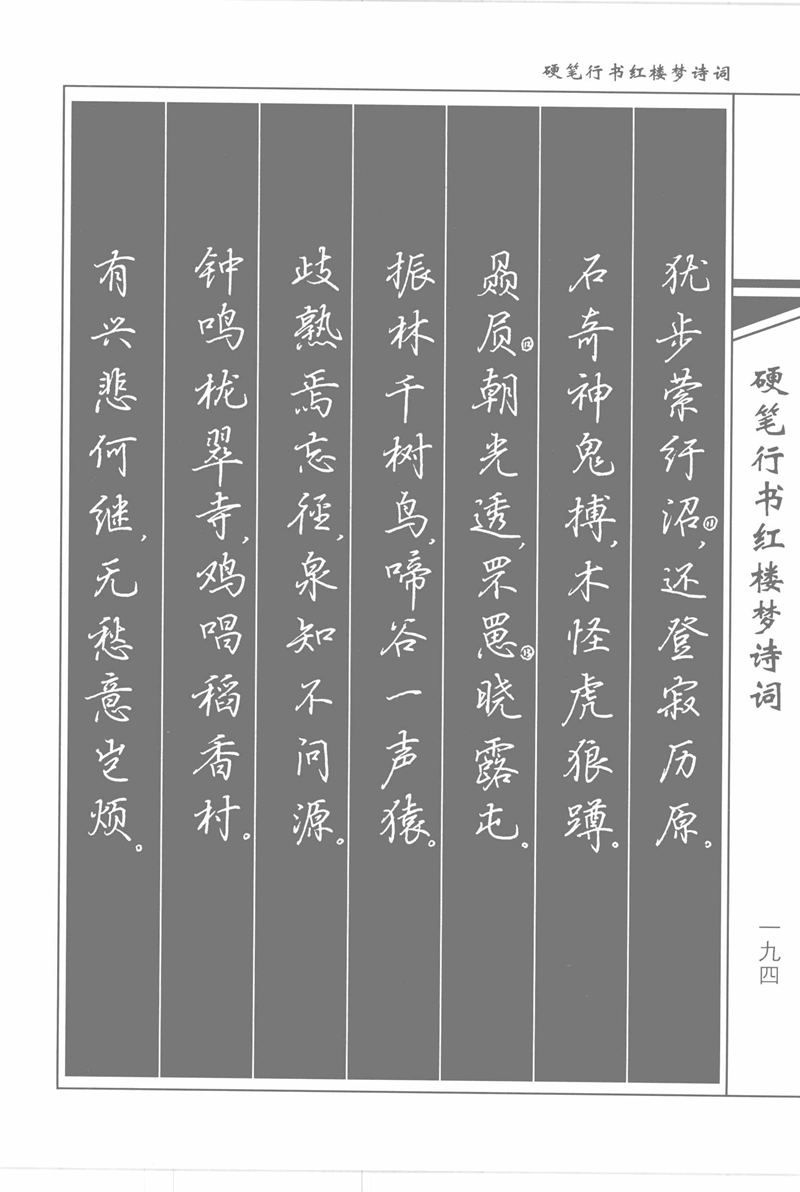 硬笔行书红楼梦诗词
硬笔行书红楼梦诗词
一九四
犹步萦纡沼⑪,还登寂历原。
石奇神鬼搏,木怪虎狼蹲。
赑屃⑫朝光透,罘罳⑬晓露屯。
振林千树鸟,啼谷一声猿。
歧熟焉忘径,泉知不问源。
钟鸣栊翠寺,鸡唱稻香村。
有兴悲何继,无愁意岂烦。